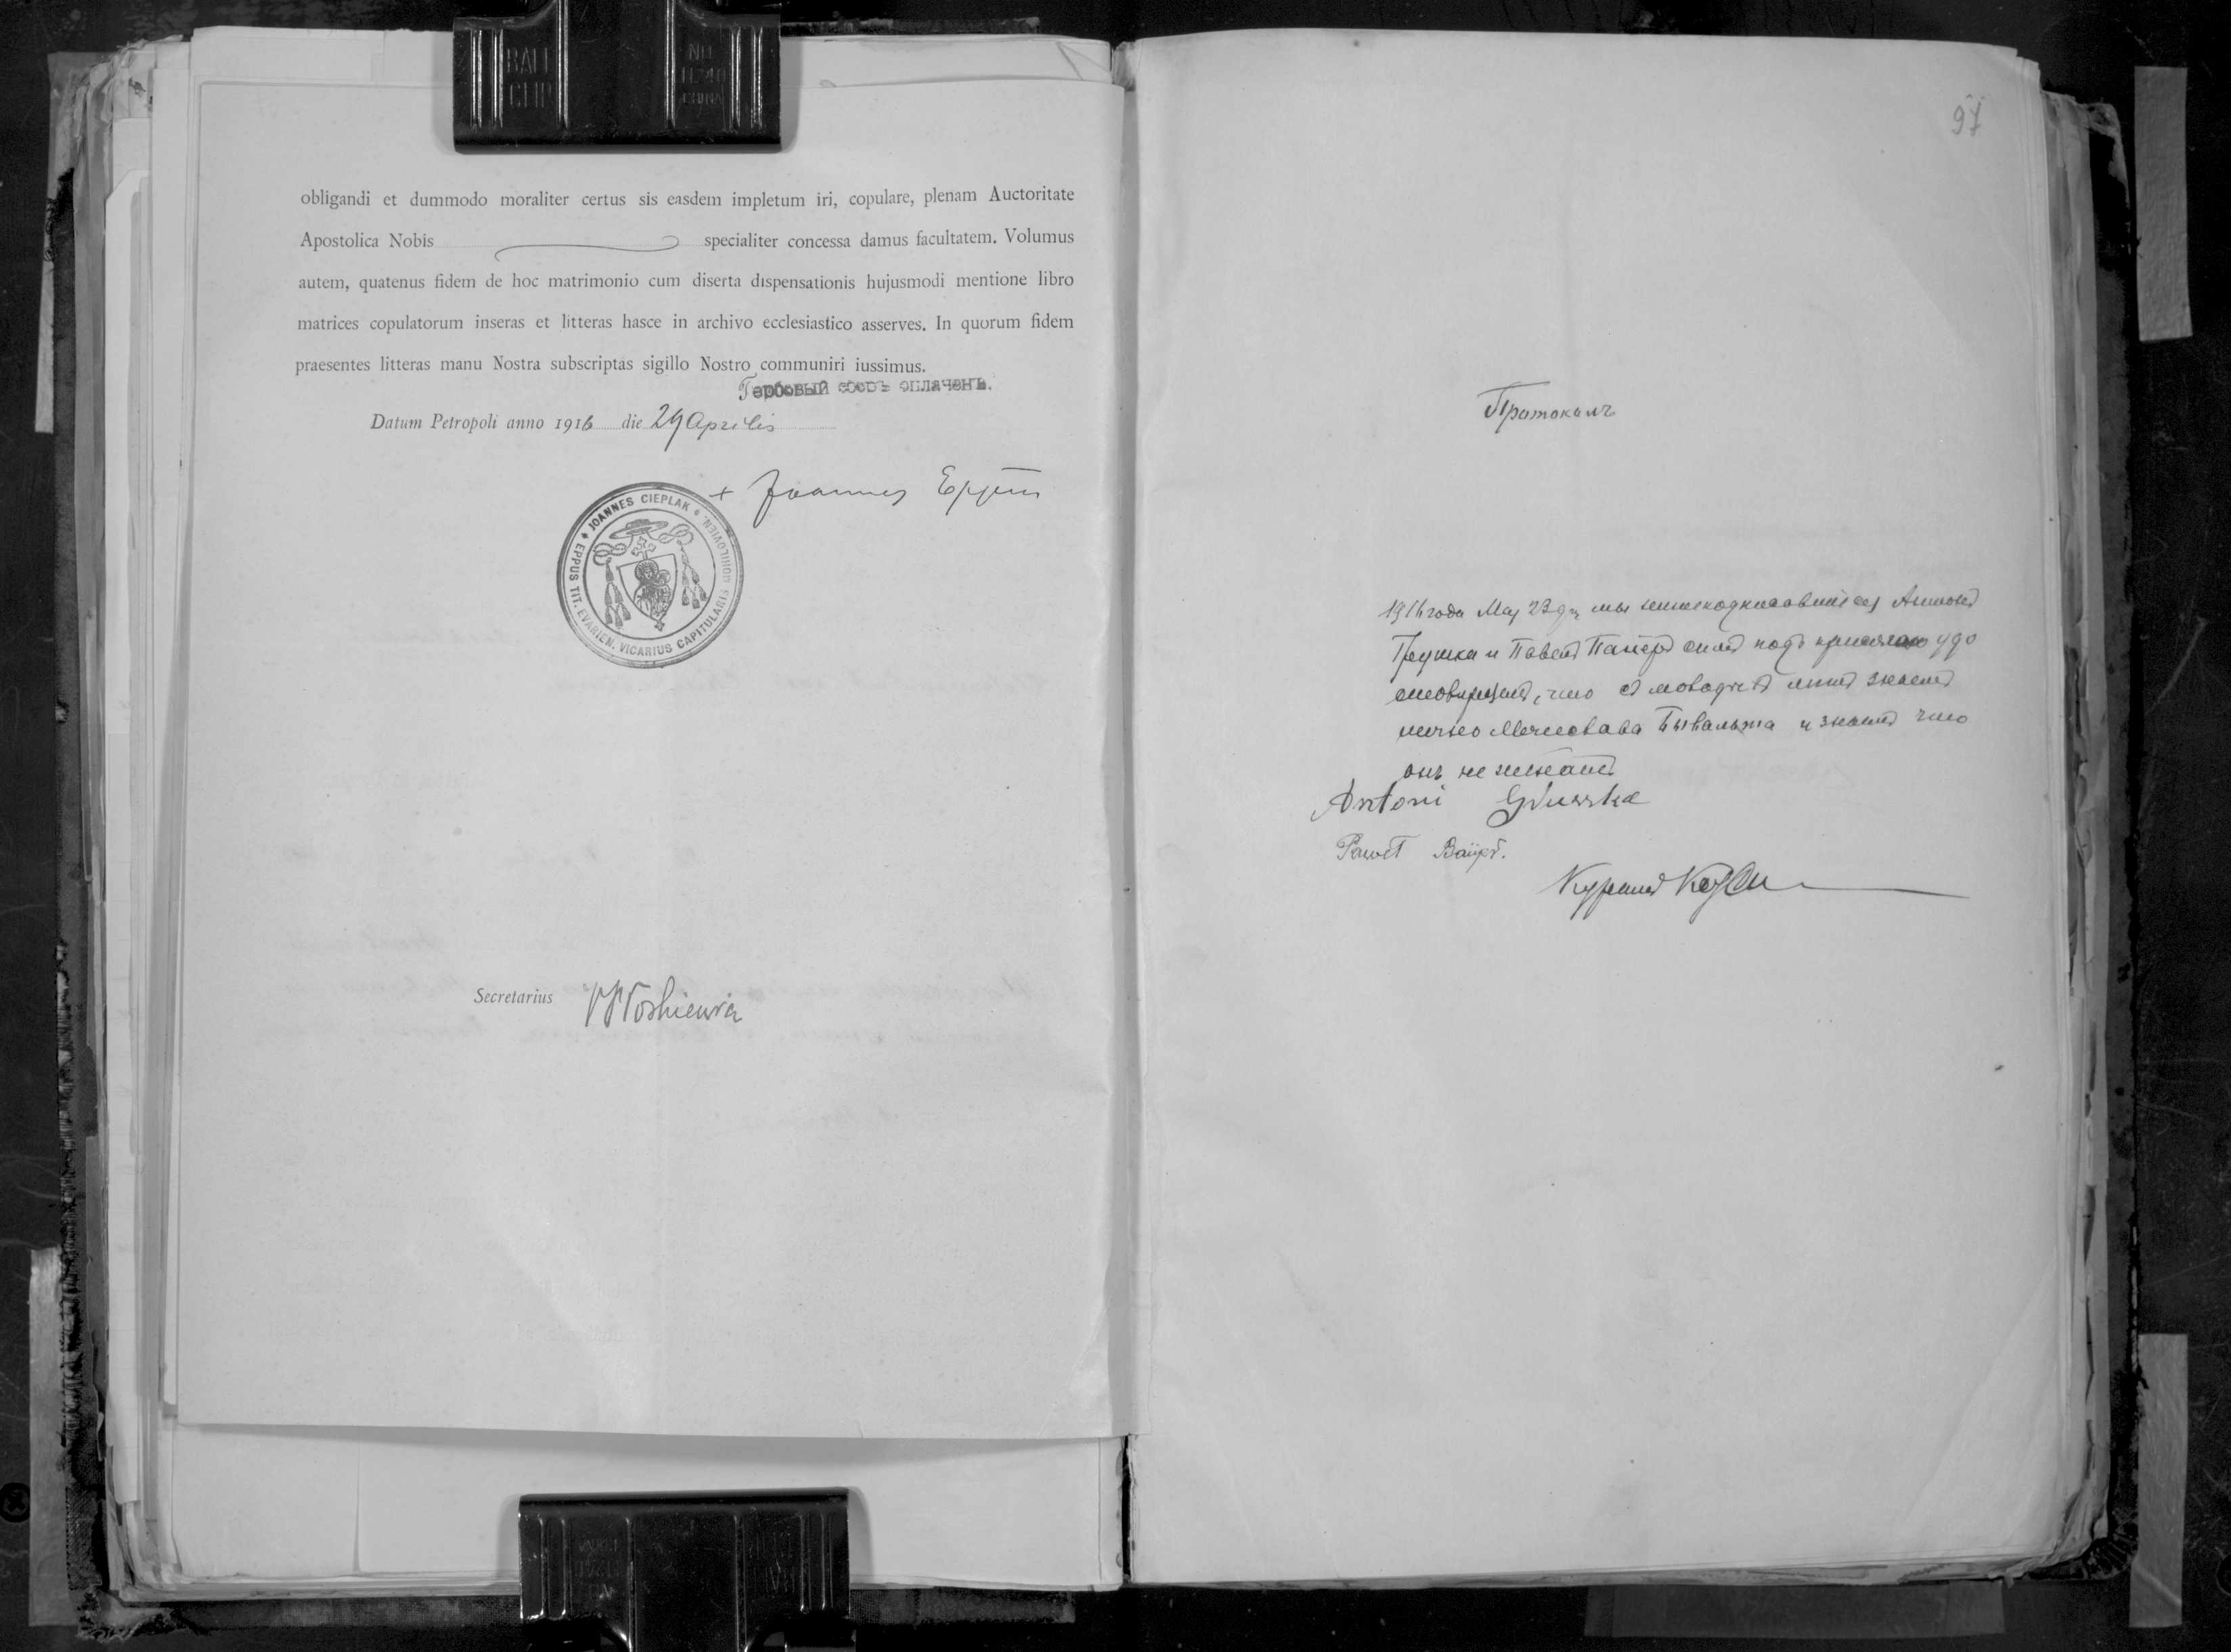 obligandi et dummodo moraliter certus sis easdem impletum iri, copulare, plenam Auctoritate
Apostolica Nobis specialiter concessa damus facultatem. Volumus
autem, quatenus fidem de hoc matrimonio cum diserta dispensationis hujusmodi mentione libro
matrices copulatorum inseras et litteras hasce in archivo ecclesiastico asserves. In quorum fidem
praesentes litteras manu Nostra subscriptas sigillo Nostro communiri iussimus.
Гербовый сборъ оплаченъ.
Datum Petropoli anno 1916 die 29 Aprilis
+ Joannes Eppus
JOANNES CIEPLAK
EPPUS TIT. EVARIEN. VICARIUS CAPITULARIS MOHILOVIEN.
Secretarius
97
Протоколъ
1916 года Мая 23 дня мы нижеподписавшіеся Антонъ
и Павелъ симъ подъ присягою удо
стовѣряемъ, что съ молодыхъ лѣтъ знаемъ
лично Мечислава и знаемъ что
онъ не женатъ
Antoni Gruszka
Paweł
Куратъ